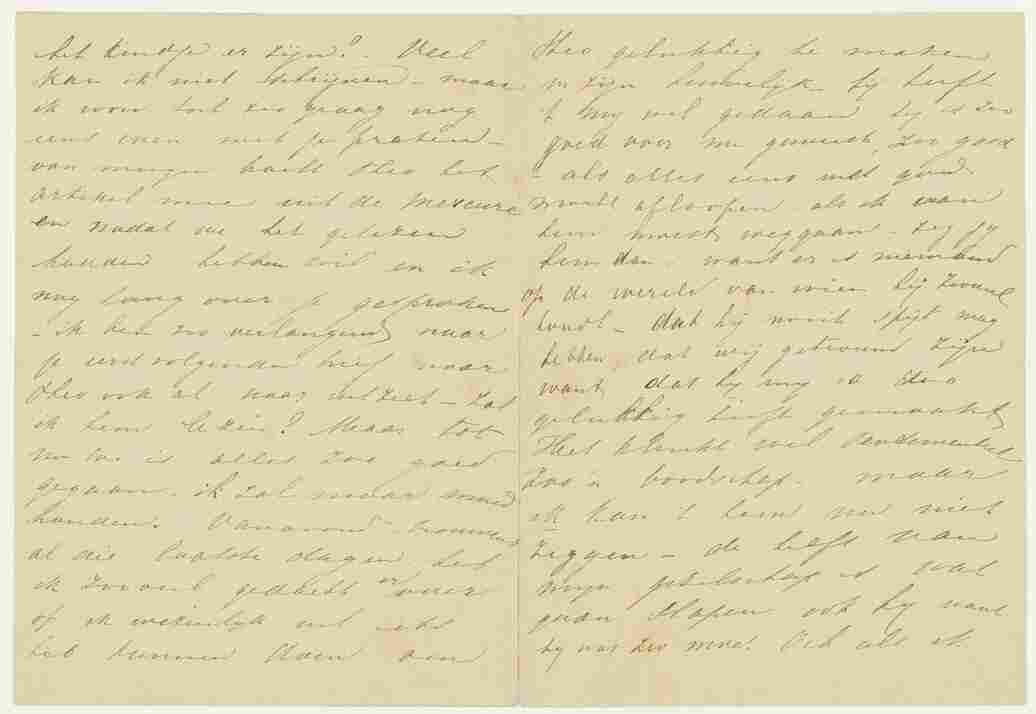 het kindje er zijn? – Veel
kan ik niet schrijven – maar
ik wou toch zoo graag nog
eens even met je praten –
van morgen bracht Theo het
artikel mee uit de Mercure
en nadat we het gelezen
hadden hebben Wil en ik
nog lang over je gesproken
– ik ben zoo verlangend naar
je eerst volgenden brief waar
Theo ook al naar uitziet – zal
ik hem lezen? Maar tot
nu toe is alles zoo goed
gegaan – ik zal maar moed
houden. Vanavond – trouwens
al die laatste dagen heb
ik zooveel gedacht er over
of ik werkelijk wel iets
heb kunnen doen om
Theo gelukkig te maken
in zijn huwelijk. hij heeft
't mij wel gedaan hij is zoo
goed voor me geweest, zoo goed
– als alles eens niet goed
mocht afloopen – als ik van
hem moest weggaan – zeg jij
hem dan – want er is niemand
op de wereld van wien hij zooveel
houdt – dat hij nooit spijt mag
hebben, dat wij getrouwd zijn
want dat hij mij o zoo
gelukkig heeft gemaakt
Het klinkt wel sentimenteel
zoo'n boodschap – maar
ik kan 't hem nu niet
zeggen – de helft van
mijn gezelschap is wat
gaan slapen ook hij want
hij was zoo moe. Och als ik